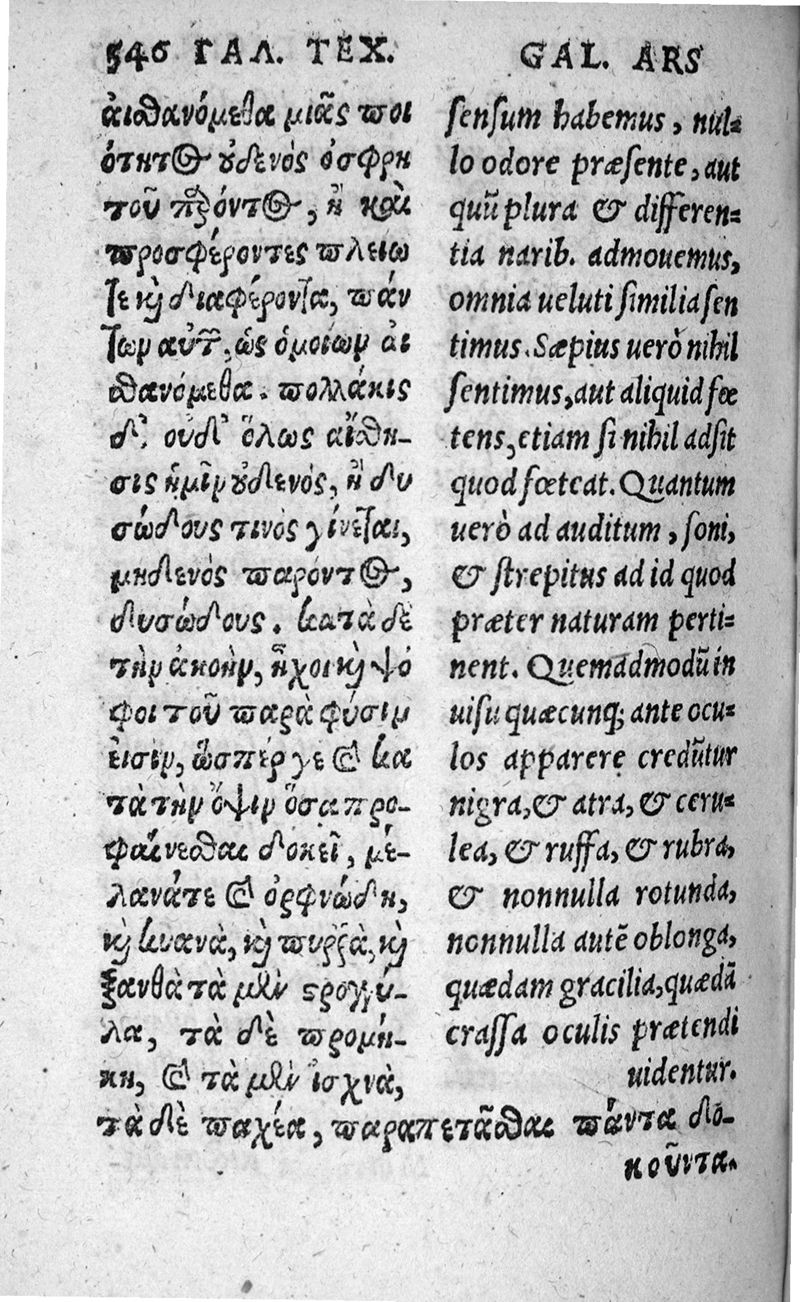 546 ΓΑΛ. ΤΕΧ.
αἰσθανόμεθα μιᾶς ποι
ότητος οὐδενός ὀσφρη
τοῦ παρόντος, ἢ καὶ
προσφέροντες πλείω
τε καὶ διαφέροντα, πάν
των αὐτῶν, ὡς ὁμοίων αἰ
σθανόμεθα. πολλάκις
δ'. οὐδ' ὅλως αἴσθη-
σις ἡμῖν οὐδενός, ἢ δυ
σώδους τινὸς γίνεται,
μηδενός παρόντος,
δυσώδους. κατὰ δὲ
τὴν ἀκοὴν, ἦχοι καὶ ψό
φοι τοῦ παρὰ φύσιν
εἰσὶν, ὥσπέρ γε καὶ κα
τὰ τὴν ὄψιν ὅσα προ-
φαίνεσθαι δοκεῖ, μέ-
λανάτε καὶ ὀρφνώδη,
καὶ κυανὰ, καὶ πυῤῥὰ, καὶ
ξανθὰ τὰ μὲν στρογγύ-
λα, τὰ δὲ προμή-
κη, καὶ τὰ μὲν ἰσχνὰ,
τὰ δὲ παχέα, παραπετᾶσθαι πάντα δο-
κοῦντα.
GAL. ARS
sensum habemus, nul-
lo odore præsente, aut
quũ plura & differen-
tia narib. admouemus,
omnia ueluti similia sen
timus. Sæpius uerò nihil
sentimus, aut aliquid fœ
tens, etiam si nihil adsit
quod fœteat. Quantum
uerò ad auditum, soni,
& strepitus ad id quod
præter naturam perti-
nent. Quemadmodũ in
uisu quæcunq; ante ocu-
los apparere credũtur
nigra, & atra, & ceru-
lea, & ruffa, & rubra,
& nonnulla rotunda,
nonnulla autẽ oblonga,
quædam gracilia, quædã
crassa oculis prætendi
uidentur.